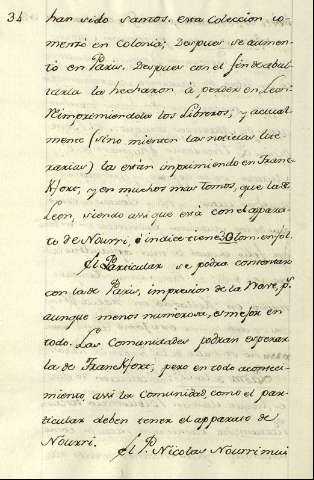 34
han sido Santos. esta Coleccion co-
mentó en Colonia; Despues se aumen-
tó en Paris. Despues con el fin de abul-
tarla la hecharon à perder en Leon
Reimprimiendola los Libreros; y actual-
mente (sino mienten las noticias lite-
rarias) la están imprimiendo en Franc-
Kfort, y en muchos mas tomos, que la de
Leon, siendo assi que está con el apara-
to de Nourri, è indice tiene 30 tom. en fol.
El Particular se podra contentar
con la de Paris, impresion de la Nave, p.
aunque menos numerosa, es mejor en
todo. Las Comunidades podran esperar
la de Franckfort; pero en todo aconteci-
miento assi la Comunidad, como el par-
ticular deben tener el apparato de
Nourri.
El P. Nicolas Nourri mui